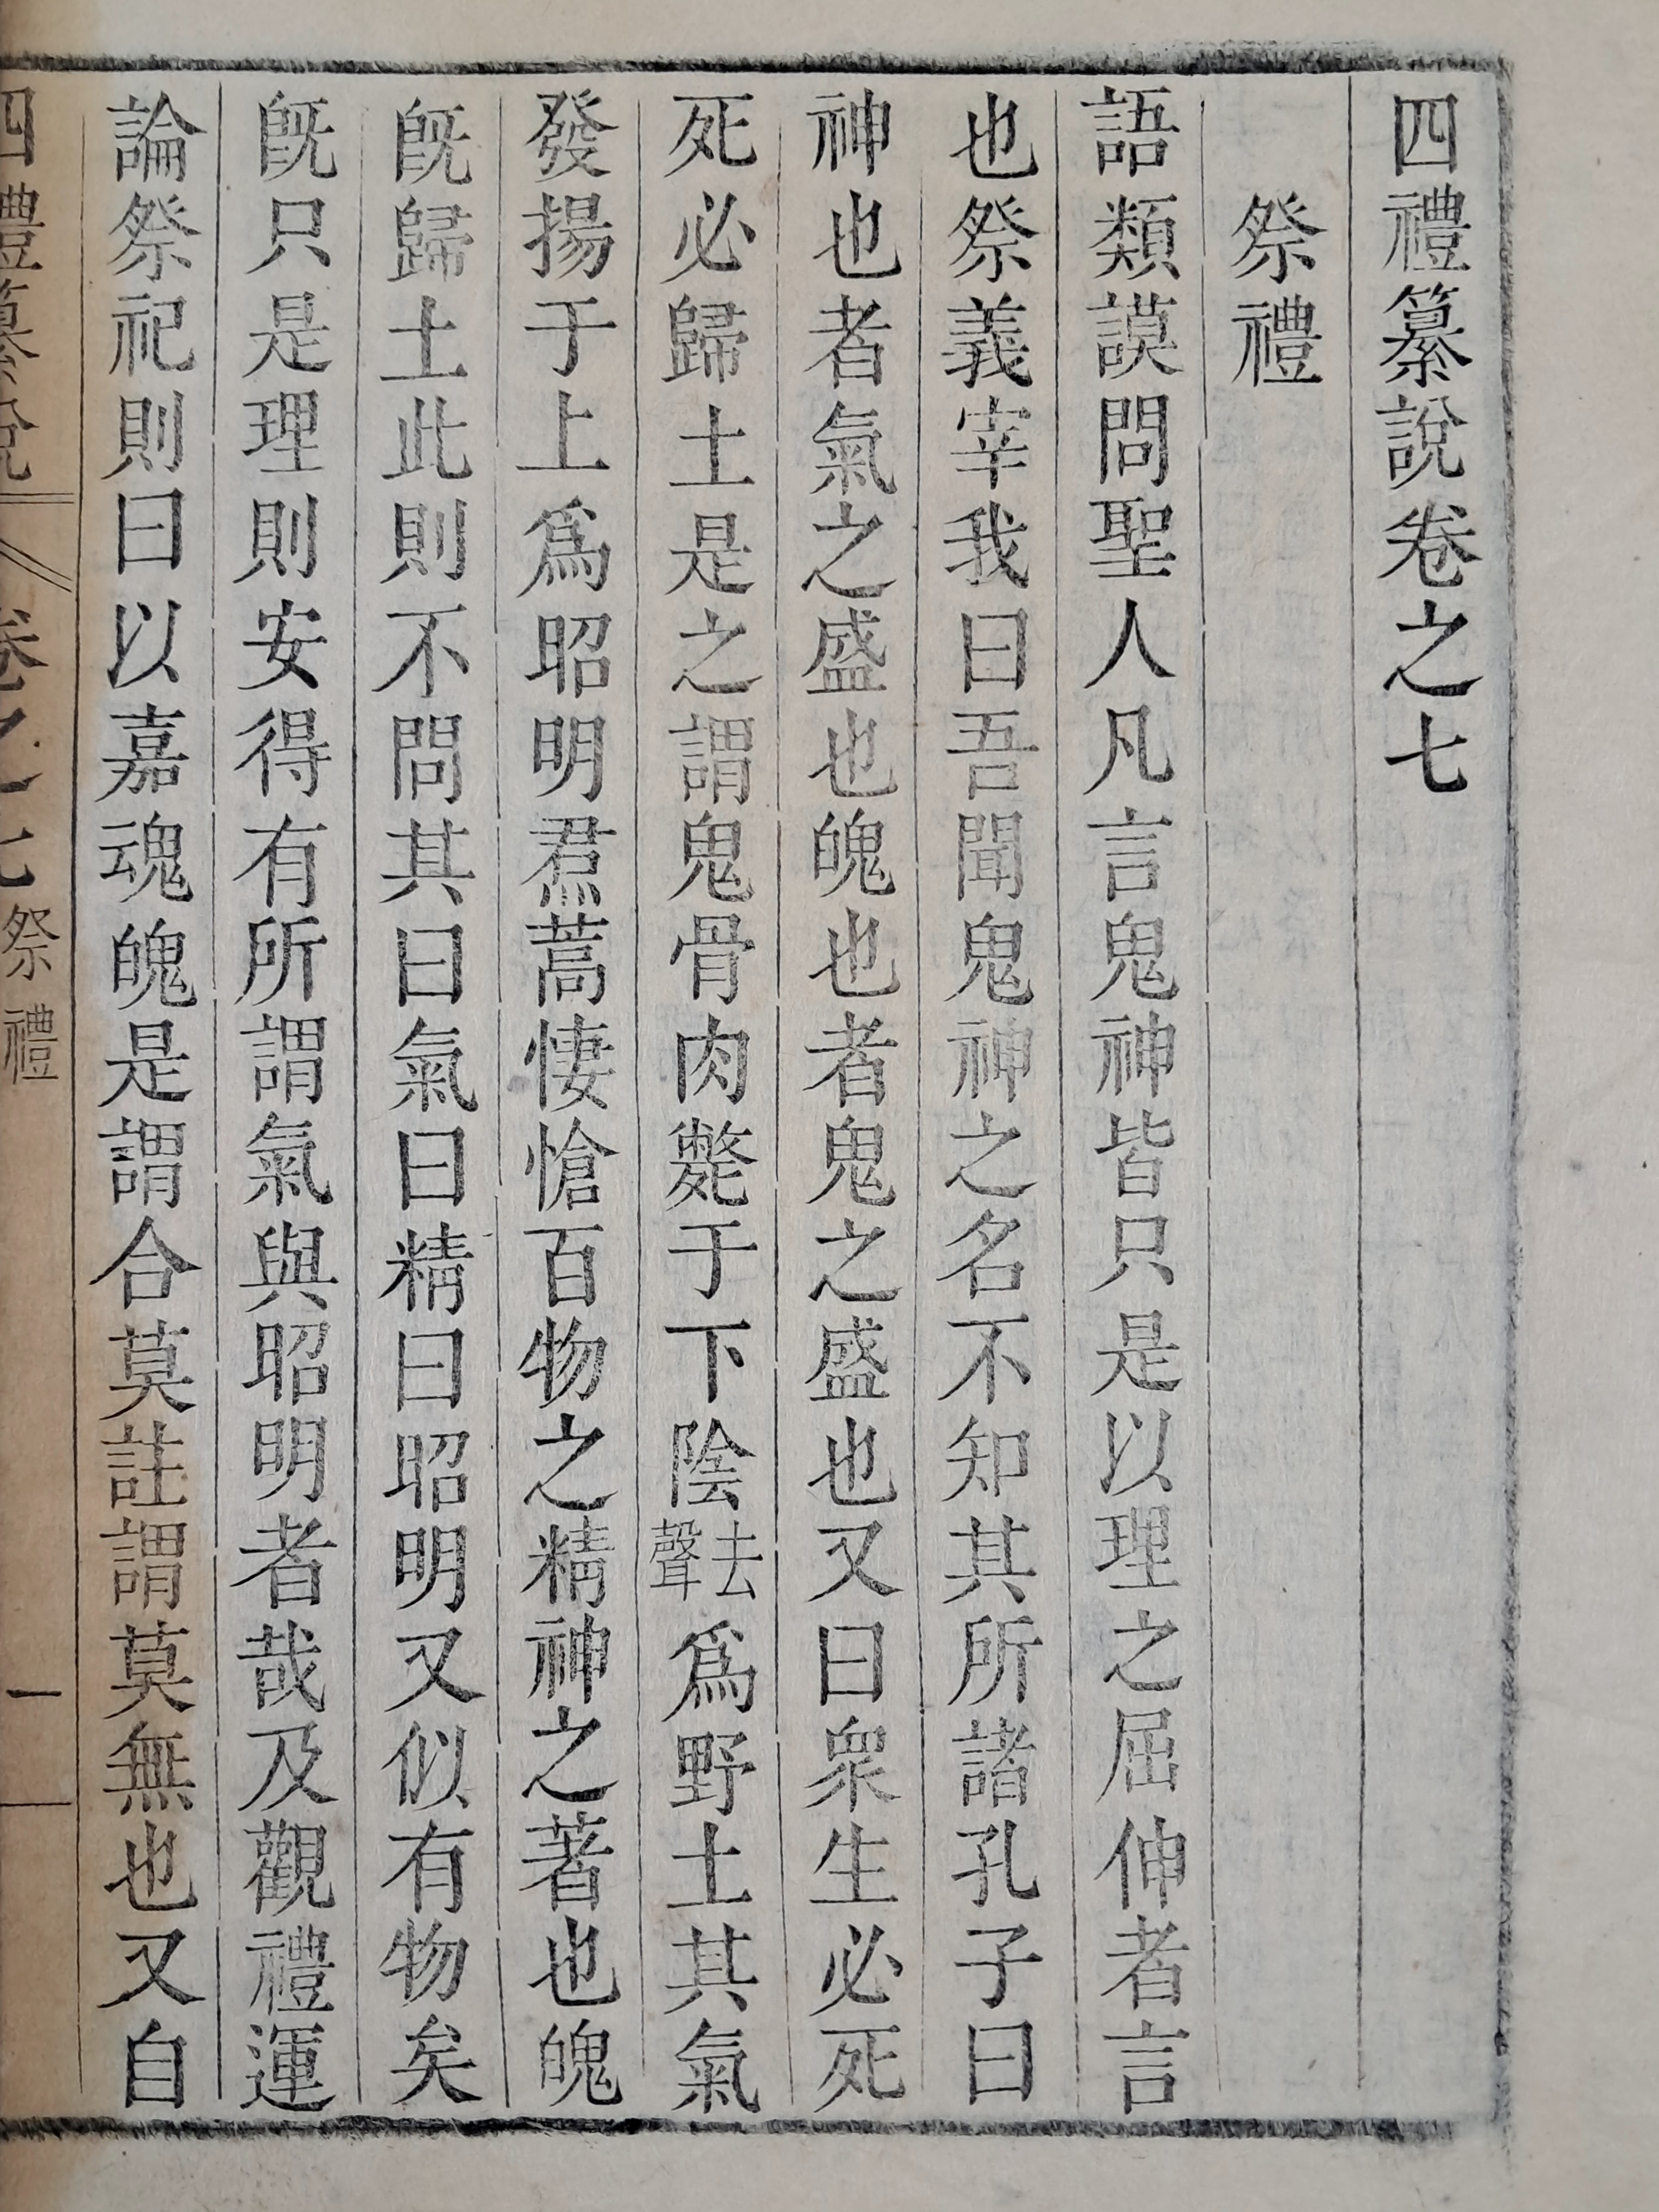 四禮纂說卷之七
祭禮
語類謨問聖人凡言鬼神皆只是以理之屈伸者言
也祭義宰我曰吾聞鬼神之名不知其所諸孔子曰
神也者氣之盛也魄也者鬼之盛也又曰眾生必死
死必歸土是之謂鬼骨肉斃于下陰去聲爲野土其氣
發揚于上爲昭明焄蒿悽愴百物之精神之著也魄
既歸土此則不問其曰氣曰精曰昭明又似有物矣
既只是理則安得有所謂氣與昭明者哉及觀禮運
論祭祀則曰以嘉魂魄是謂合莫註謂莫無也又自
四禮纂說 卷之七 祭禮 一